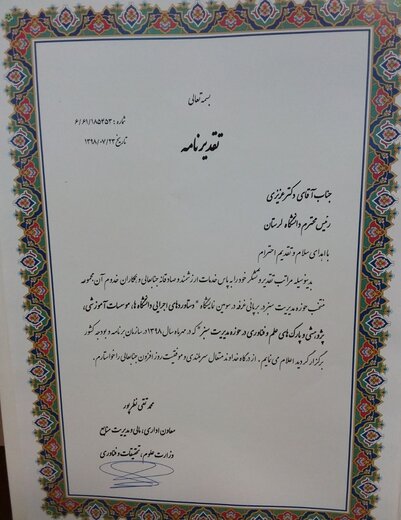 بسمه تعالی
شماره : ۶/۶۱/۱۸۵۲۵۳
تاریخ ۱۳۹۸/۰۷/۲۳
تقدیرنامه
جناب آقای دکتر عزیزی
رئیس محترم دانشگاه لرستان
با اهدای سلام و تقدیم احترام
بدینوسیله مراتب تقدیر و تشکر خود را به پاس خدمات ارزشمند و صادقانه جنابعالی و همکاران خدوم آن مجموعه
منتخب حوزه مدیریت سبز در برپایی غرفه در سومین نمایشگاه "دستاوردهای اجرایی دانشگاه ها، موسسات آموزشی،
پژوهشی و پارک های علم و فناوری در حوزه مدیریت سبز" که در مهر ماه سال ۱۳۹۸ در سازمان برنامه و بودجه کشور
برگزار گردید اعلام می نمایم. از درگاه خداوند متعال سربلندی و موفقیت روز افزون جنابعالی را خواستارم.
محمد تقی نظرپور
معاون اداری، مالی و مدیریت منابع
وزارت علوم، تحقیقات و فناوری